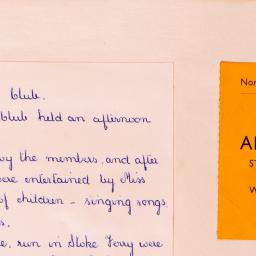 Club.
Club held an afternoon
by the members, and after
were entertained by Miss
of children - singing songs,
run in Stoke Ferry were
Nor
A
ST
W